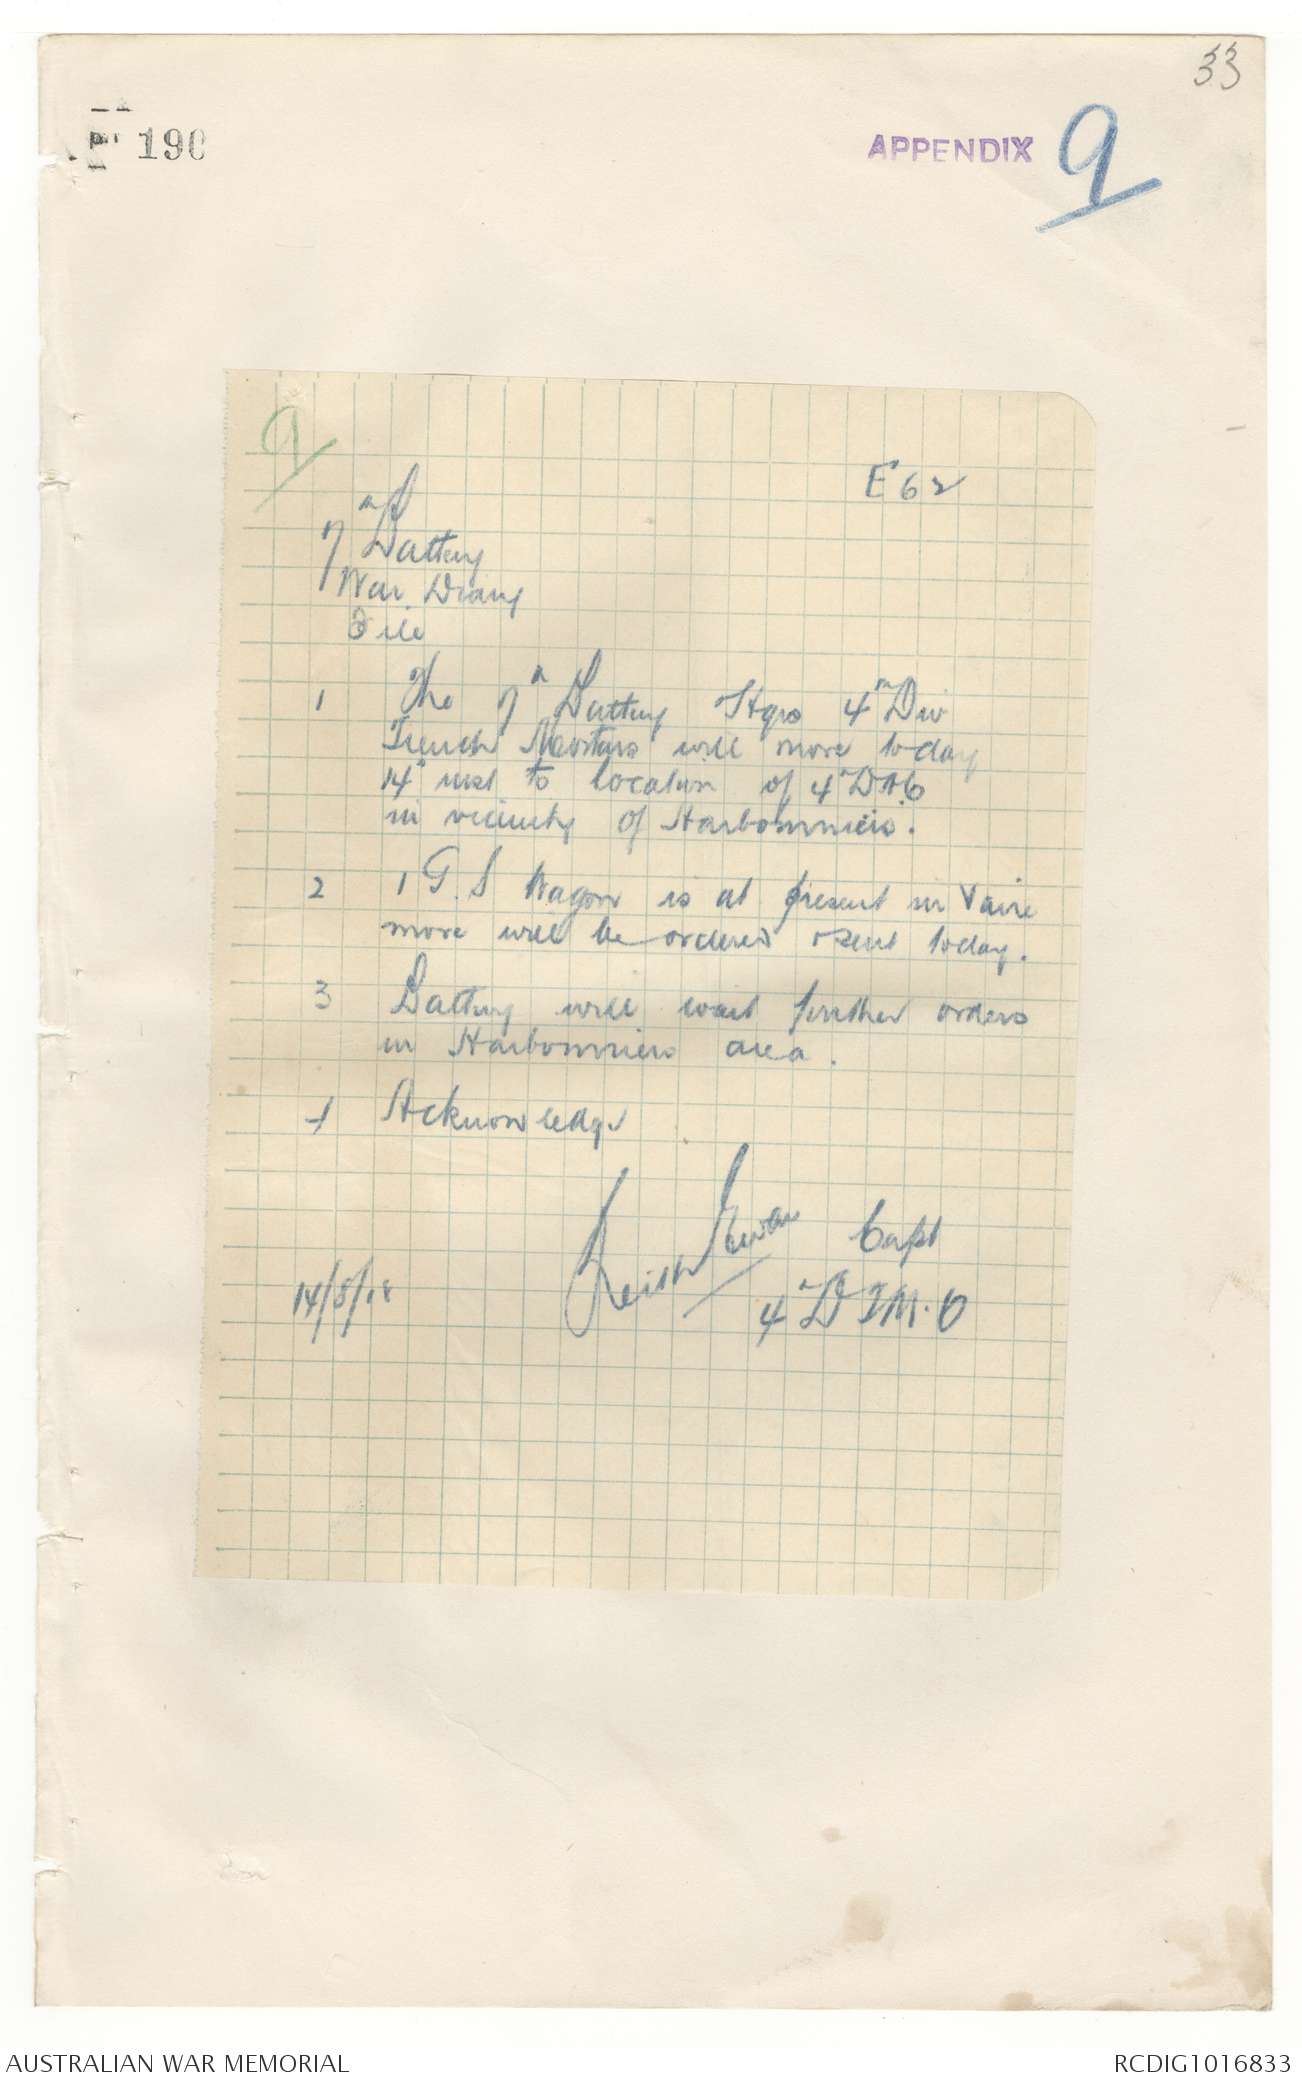 33
190
APPENDIX 9
9
E 62
7th Battery
War Diary
File
1 The 7th Battery Hqrs 4th Div
Trench Mortars will move today
14th inst to location of 4th DAC
in vicinity of Harbonnieres.
2 1 G.S Wagon is at present in Vaire
more will be ordered & sent today.
3 Battery will wait further orders
in Harbonniers area.
4 Acknowledge
Keith Capt
14/8/18
4th D.T.M.O
AUSTRALIAN WAR MEMORIAL
RCDIG1016833